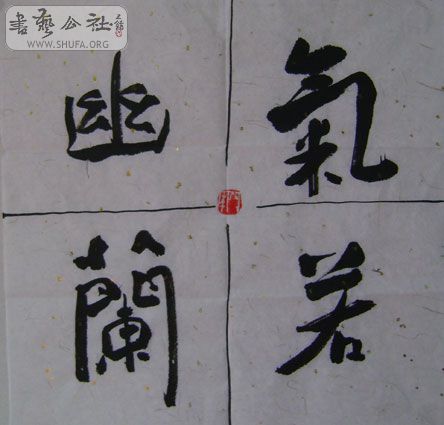 書藝公社
WWW.SHUFA.ORG
氣若
幽蘭